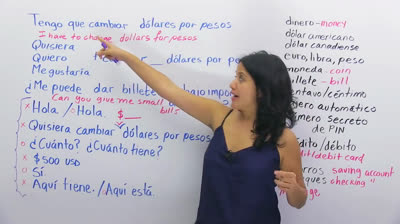 Tengo que cambiar dólares por pesos
I have to change dollars for pesos
Quisiera
Quiero
Me gustaría
dólares por pesos
¿Me puede dar billete bajo
Can you give me small bills
Hola / Hola. $___
Quisiera cambiar dólares por pesos
¿Cuánto? ¿Cuánto tiene?
$500 USD
Sí.
Aquí tiene. / Aquí está.
dinero - money
dólar americano
dólar canadiense
euro, libra, peso
moneda - coin
billete - bill
centavo/céntimo
cajero automático
número secreto
de PIN
crédito / débito
credit/debit card
ahorros saving account
cheques checking "